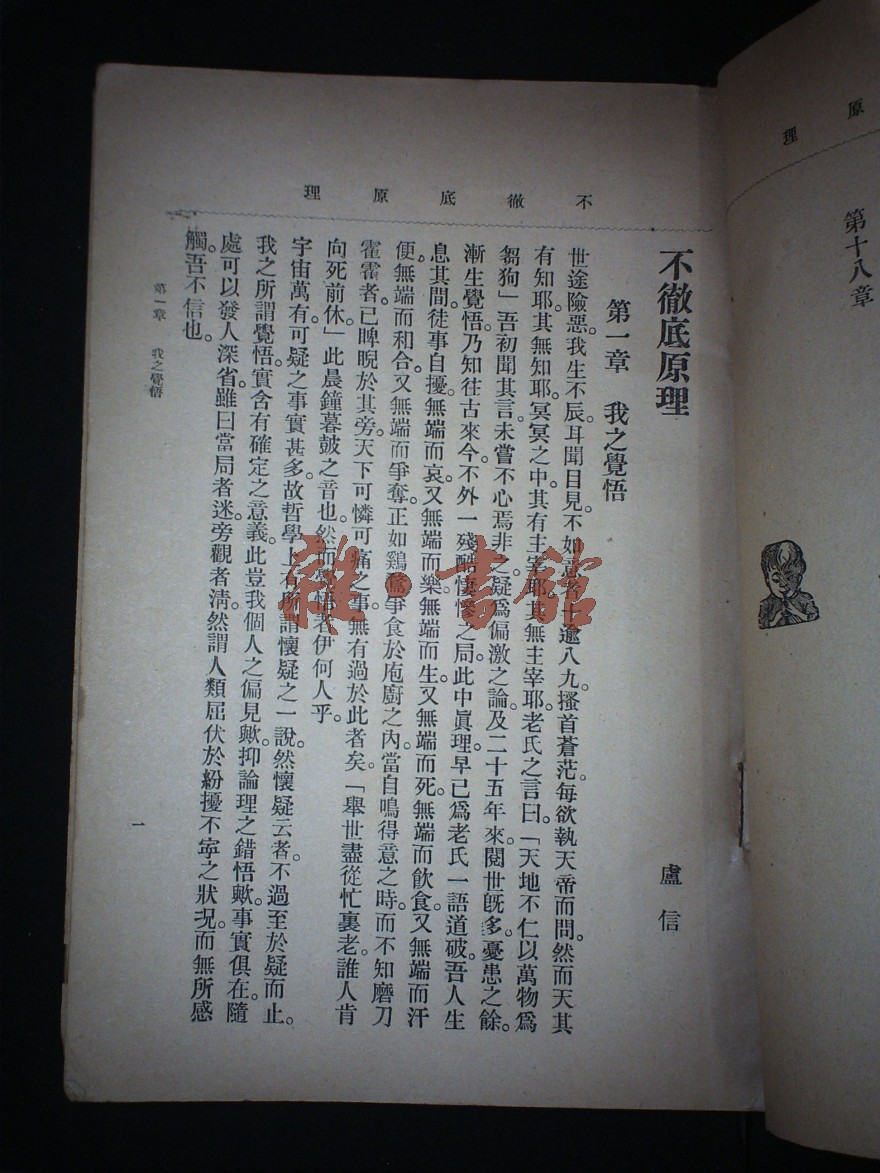 原理
第十八章
不徹底原理
不徹底原理
盧信
第一章　我之覺悟
世途險惡。我生不辰。耳聞目見。不如意者十逾八九。搔首蒼茫。每欲執天帝而問。然而天其
有知耶。其無知耶。冥冥之中。其有主宰耶。其無主宰耶。老氏之言曰。「天地不仁以萬物爲
芻狗」吾初聞其言。未嘗不心焉非之。疑爲偏激之論。及二十五年來。閱世既多。憂患之餘。
漸生覺悟。乃知往古來今。不外一殘酷悽慘之局。此中眞理。早已爲老氏一語道破。吾人生
息其間。徒事自擾。無端而哀。又無端而樂。無端而生。又無端而死。無端而飲食。又無端而汗
便。無端而和合。又無端而爭奪。正如鷄鶩爭食於庖廚之內。當自鳴得意之時。而不知磨刀
霍霍者。已睥睨於其旁。天下可憐可痛之事。無有過於此者矣。「舉世盡從忙裏老。誰人肯
向死前休」此晨鐘暮皷之音也。然而覺悟者伊何人乎。
宇宙萬有。可疑之事實甚多。故哲學上有所謂懷疑之一說。然懷疑云者。不過至於疑而止。
我之所謂覺悟。實含有確定之意義。此豈我個人之偏見歟。抑論理之錯悟歟。事實俱在。隨
處可以發人深省。雖曰當局者迷。旁觀者清。然謂人類屈伏於紛擾不寧之狀況。而無所感
觸。吾不信也。
第一章　我之覺悟
一
雜·書館